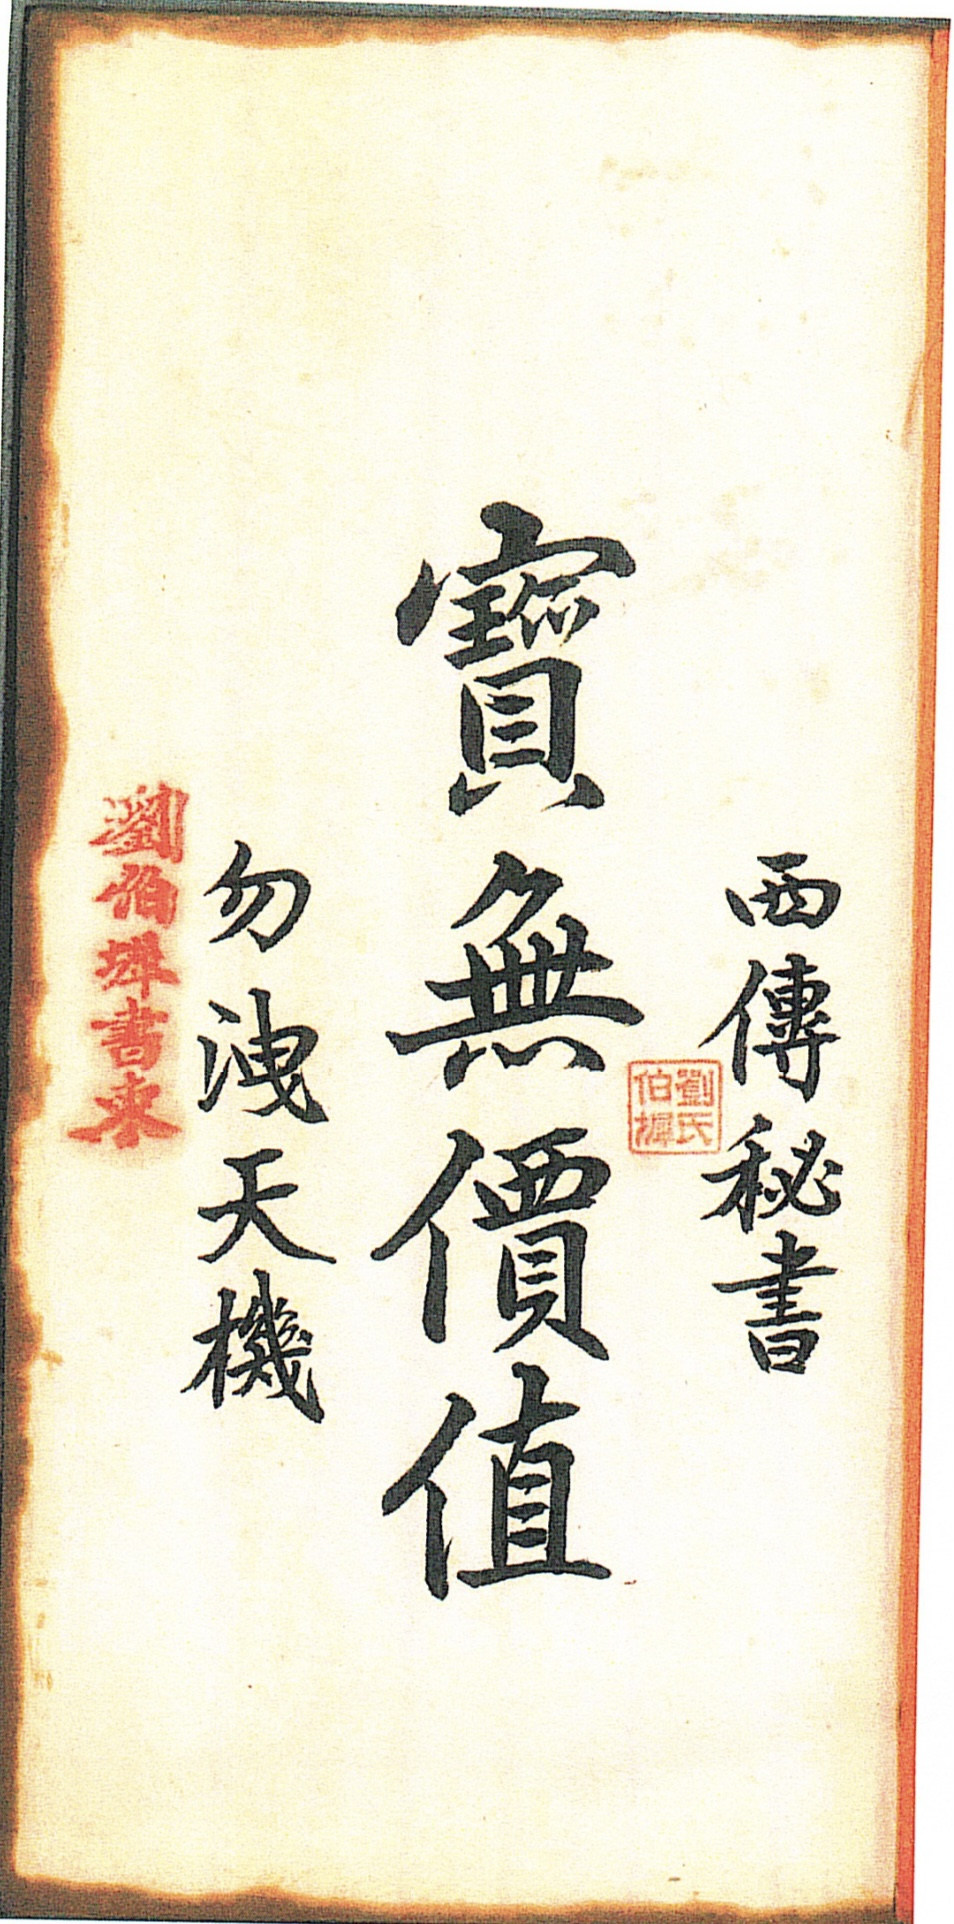 西傳秘書
劉氏
伯墀
寶無價值
勿洩天機
劉伯墀書柬